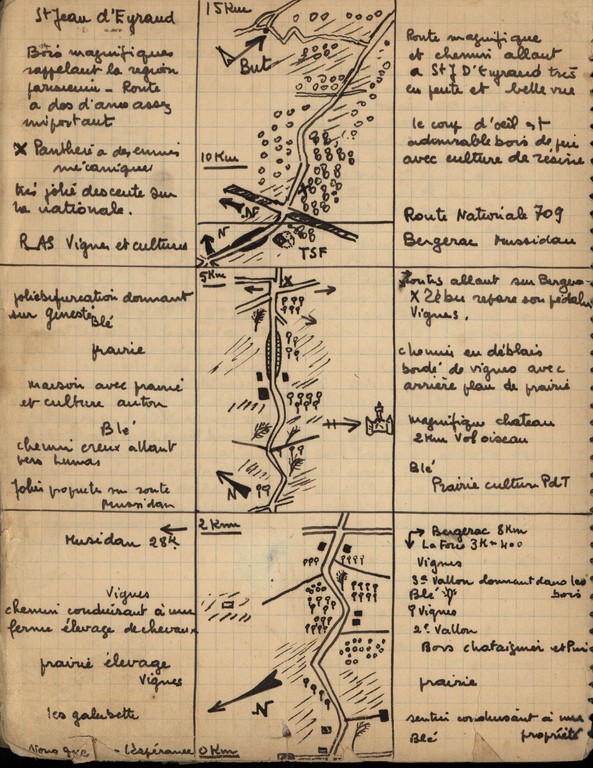 St Jean d'Eyraud
Bois magnifiques
rappelant la region
parisienne - Route
a dos d'ane assez
important
X Panthere a des ennuis
mécaniques
très jolie descente sur
la nationale.
RAS Vignes et cultures
15 Km
But
10 Km
N
N
TSF
Route magnifique
et chemin allant
a St J D'Eyraud très
en pente et belle vue
le coup d'oeil est
admirable bois de pin
avec culture de resine
Route Nationale 709
Bergerac Mussidan
jolie bifurcation donnant
sur
Blé
prairie
maison avec prairie
et culture autour
Blé
chemin creux allant
vers Lunas
Jolie propriete sur route
Mussidan
5 Km
X
N
Routes allant sur Bergerac
X Zébu repare son pédalier
Vignes.
chemin en déblais
bordé de vignes avec
arrière plan de prairie
magnifique chateau
2 Km Vol oiseau
Blé
Prairie culture PdT
Musidan 28 K
Vignes
chemin conduisant à une
ferme élevage de chevaux
prairie élevage
Vignes
les galubette
- L'espérance
2 Km
N
0 Km
Bergerac 8 Km
La Force 3 Km 400
Vignes
3e Vallon donnant dans les
Blé bois
Vignes
2e Vallon
Bois chataignier et Pin
prairie
sentier conduisant à une
Blé propriété